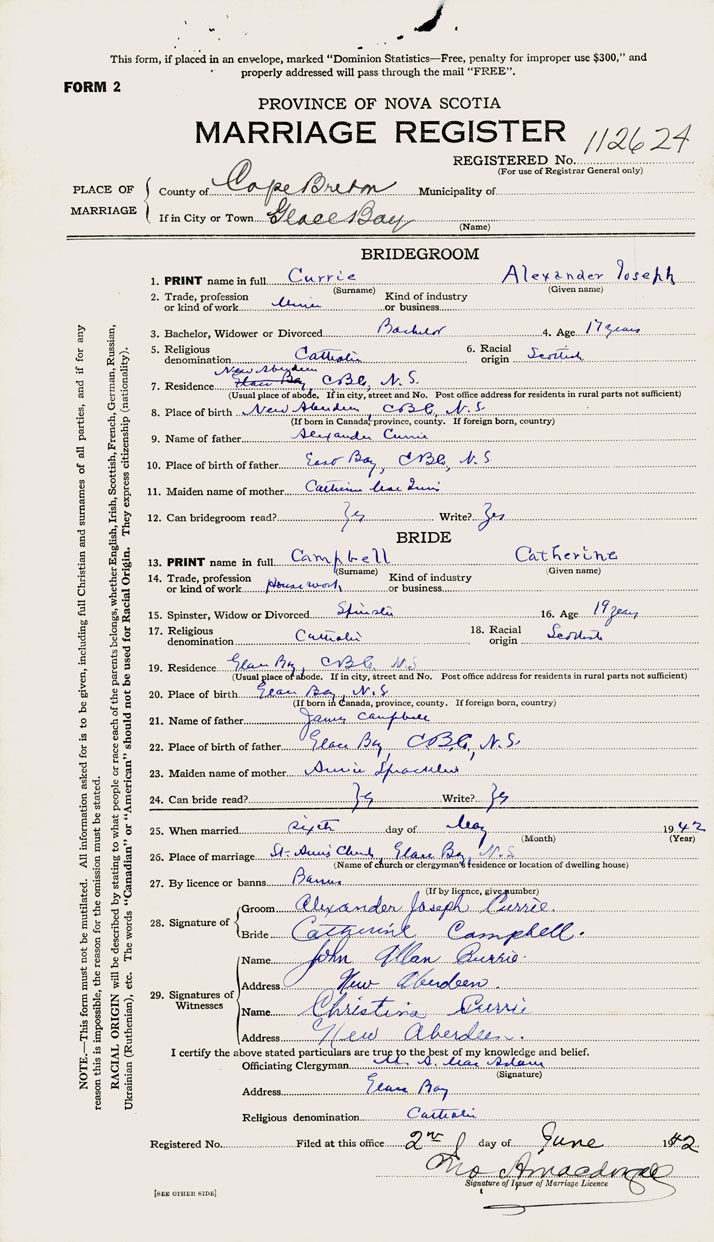 This form, if placed in an envelope, marked "Dominion Statistics—Free, penalty for improper use $300," and
properly addressed will pass through the mail "FREE".
FORM 2
PROVINCE OF NOVA SCOTIA
MARRIAGE REGISTER
112624
REGISTERED No.
(For use of Registrar General only)
PLACE OF MARRIAGE
County of Cape Breton Municipality of
If in City or Town Glace Bay
(Name)
BRIDEGROOM
1. PRINT name in full Currie Alexander Joseph
(Surname) (Given name)
2. Trade, profession or kind of work Miner Kind of industry or business
3. Bachelor, Widower or Divorced Bachelor 4. Age 17 years
5. Religious denomination Catholic 6. Racial origin Scottish
New Aberdeen
7. Residence Glace Bay, C.B.C., N.S.
(Usual place of abode. If in city, street and No. Post office address for residents in rural parts not sufficient)
8. Place of birth New Aberdeen, C.B.C., N.S
(If born in Canada, province, county. If foreign born, country)
9. Name of father Alexander Currie
10. Place of birth of father East Bay, C.B.C., N.S
11. Maiden name of mother Catherine Mac
12. Can bridegroom read? Yes Write? Yes
BRIDE
13. PRINT name in full Campbell Catherine
(Surname) (Given name)
14. Trade, profession or kind of work Housework Kind of industry or business
15. Spinster, Widow or Divorced Spinster 16. Age 19 years
17. Religious denomination Catholic 18. Racial origin Scottish
19. Residence Glace Bay, C.B.C., N.S
(Usual place of abode. If in city, street and No. Post office address for residents in rural parts not sufficient)
20. Place of birth Glace Bay, N.S
(If born in Canada, province, county. If foreign born, country)
21. Name of father James Campbell
22. Place of birth of father Glace Bay, C.B.C., N.S.
23. Maiden name of mother Annie
24. Can bride read? Yes Write? Yes
25. When married sixth day of May 1942
(Month) (Year)
26. Place of marriage St. Ann's Church, Glace Bay, N.S
(Name of church or clergyman's residence or location of dwelling house)
27. By licence or banns Banns
(If by licence, give number)
28. Signature of
Groom Alexander Joseph Currie.
Bride Catherine Campbell.
29. Signatures of Witnesses
Name John Allan Currie
Address New Aberdeen.
Name Christina Currie
Address New Aberdeen.
I certify the above stated particulars are true to the best of my knowledge and belief.
Officiating Clergyman M. A. Mac Adam
(Signature)
Address Glace Bay
Religious denomination Catholic
Registered No. Filed at this office 2nd day of June 1942
Signature of Issuer of Marriage Licence
[SEE OTHER SIDE]
NOTE.—This form must not be mutilated. All information asked for is to be given, including full Christian and surnames of all parties, and if for any
reason this is impossible, the reason for the omission must be stated.
RACIAL ORIGIN will be described by stating to what people or race each of the parents belongs, whether English, Irish, Scottish, French, German, Russian,
Ukrainian (Ruthenian), etc. The words "Canadian" or "American" should not be used for Racial Origin. They express citizenship (nationality).